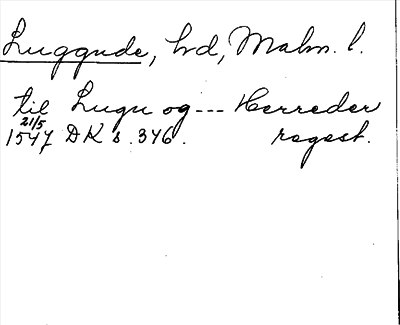 Luggude, hd, Malm. l.
til Lugu og --- Herreder
21/5
1547 DK s. 346. regest.